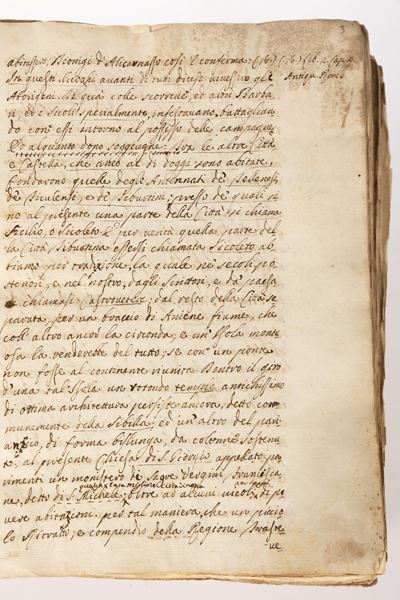 3
abitasero, Dionigi d'Alicarnasso così l'conferma: (36) (36) lib. 2 Cap. 9.
In questi Luoghi avanti di tutti dicesi vivessero gl' Antiqu. Rom.
Aborigeni
e de Siculi specialmente, infestavano, battaglian
do con essi intorno al possesso delle campagne
Ed alquanto dopo soggiugne: Tra le altre Città
e Castella, che anco al dì d'oggi sono abitate,
fondarono quelle degli Antennati de
de Siculensi, e de Tiburtini; presso de quali si
no al presente una parte della Città si chiama
Sicilio, o Sicoleto. E per verità quella parte del
la Città Tiburtina essersi chiamata Sicoleto ab
biamo per tradizione, la quale ne secoli po
steriori, e nel nostro, dagli Scrittori, e da
chiamasi Castrovetere; dal resto della Città se
parata per un braccio di Aniene fiume, che
coll' altro ancor la circonda; e un' Isola mont
osa la renderebbe del tutto; se con un ponte
non fosse al continente riunita. Dentro il giro
d'una tal' Isola un rotondo tempio antichissimo
di ottima architettura persiste ancora, detto com
munemente della Sibilla, ed un' altro del pari
antico, di forma bislunga, da colonne sostenu
to, al presente Chiesa di S. Giorgio appellato; pa
rimenti un monistero di Sagre Vergini Francesca
ne, detto di S. Michele; oltre ad alcuni vicoli di po
vere abitazioni; per tal maniera, che un picco
lo ritratto, e compendio della Regione Traste
ve